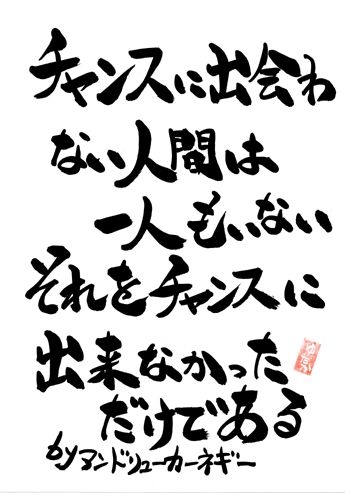 チャンスに出会わ
ない人間は
一人もいない
それをチャンスに
出来なかった
だけである
byアンドリューカーネギー